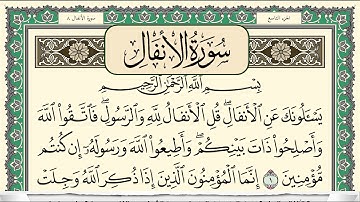 سورة الأنفال ٨
الجزء التاسع
سُورَةُ الأَنفَالِ
بِسْمِ اللَّهِ الرَّحْمَٰنِ الرَّحِيمِ
يَسْـَٔلُونَكَ عَنِ ٱلْأَنفَالِ ۖ قُلِ ٱلْأَنفَالُ لِلَّهِ وَٱلرَّسُولِ ۖ فَٱتَّقُوا۟ ٱللَّهَ
وَأَصْلِحُوا۟ ذَاتَ بَيْنِكُمْ ۖ وَأَطِيعُوا۟ ٱللَّهَ وَرَسُولَهُۥٓ إِن كُنتُم
مُّؤْمِنِينَ ١ إِنَّمَا ٱلْمُؤْمِنُونَ ٱلَّذِينَ إِذَا ذُكِرَ ٱللَّهُ وَجِلَتْ